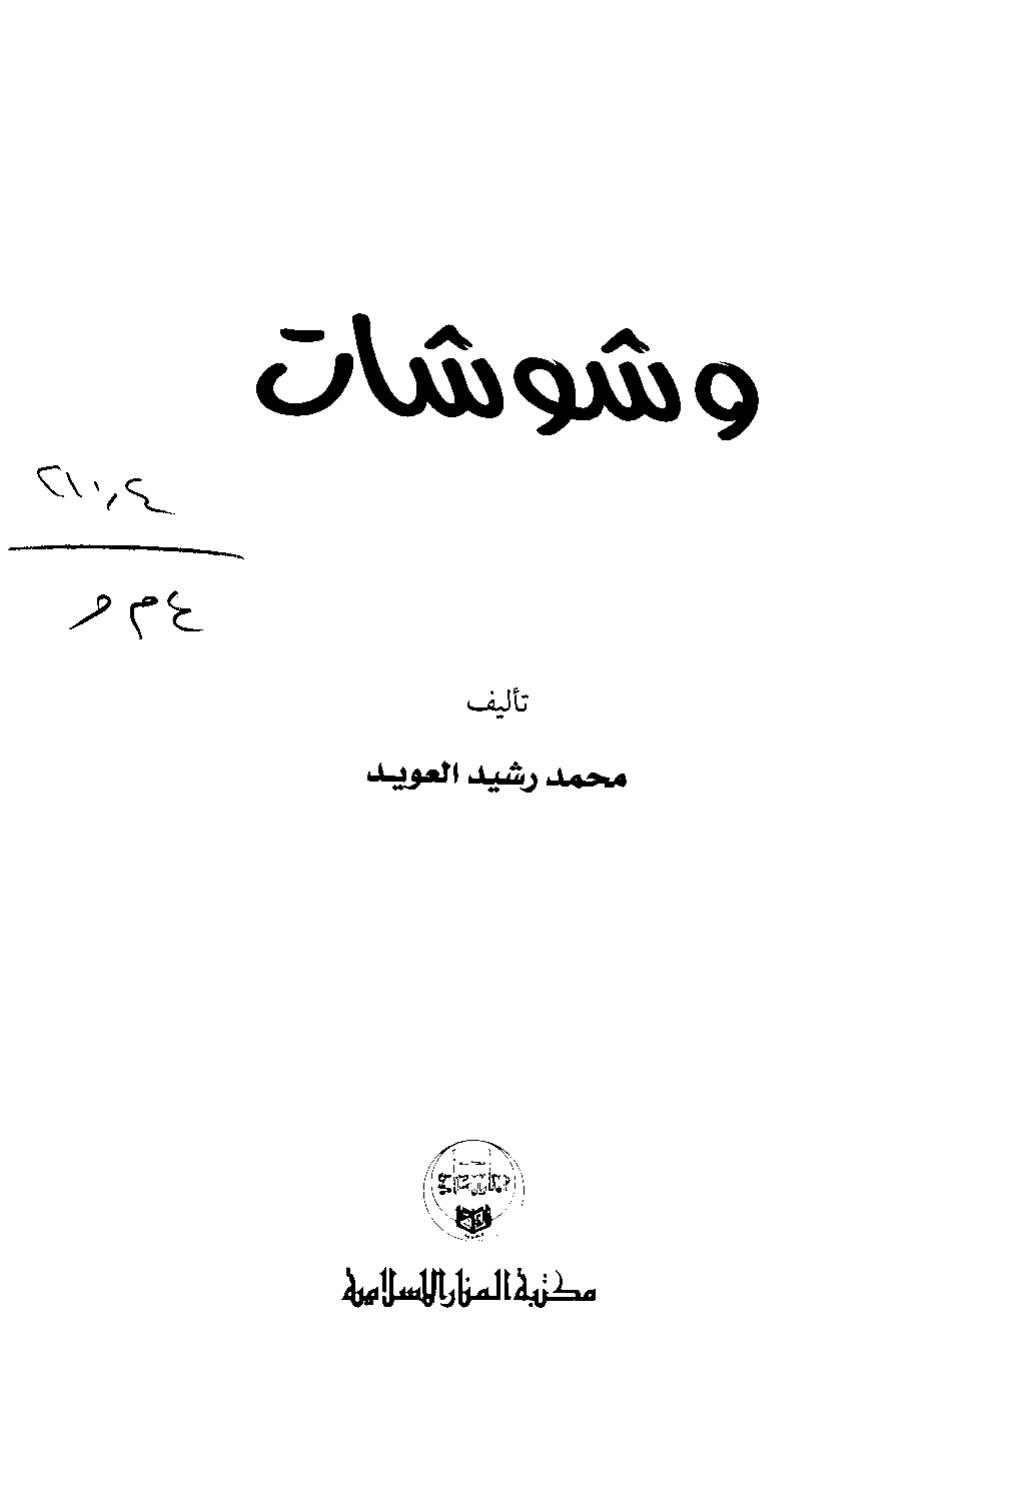 وشوشات
٢١٠,٤
ع م و
تأليف
محمد رشيد العويد
مكتبة المنار الإسلامية